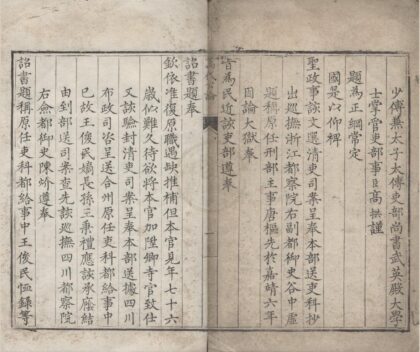 少傅兼太子太傅吏部尚書武英殿大學
士掌管吏部事臣高拱謹
題為正綱常定
國是以仰裨
聖政事該文選清吏司案呈奉本部送吏科抄
出巡撫浙江都察院右副都御史谷中虛
題稱原任刑部主事唐樞先於嘉靖六年
因論大獄奉
旨為民近該吏部遵奉
詔書題奉
欽依准復原職遇缺推補但本官見年七十六
歲似難久待欲將本官加陞卿寺官致仕
又該驗封清吏司案呈奉本部送據四川
布政司咨呈送合州原任吏科都給事中
已故王俊民嫡長孫王秉禮應該承廕結
由到部送司案查先該巡撫四川都察院
右僉都御史陳遵奉
詔書題稱原任吏科都給事中王俊民恤錄等